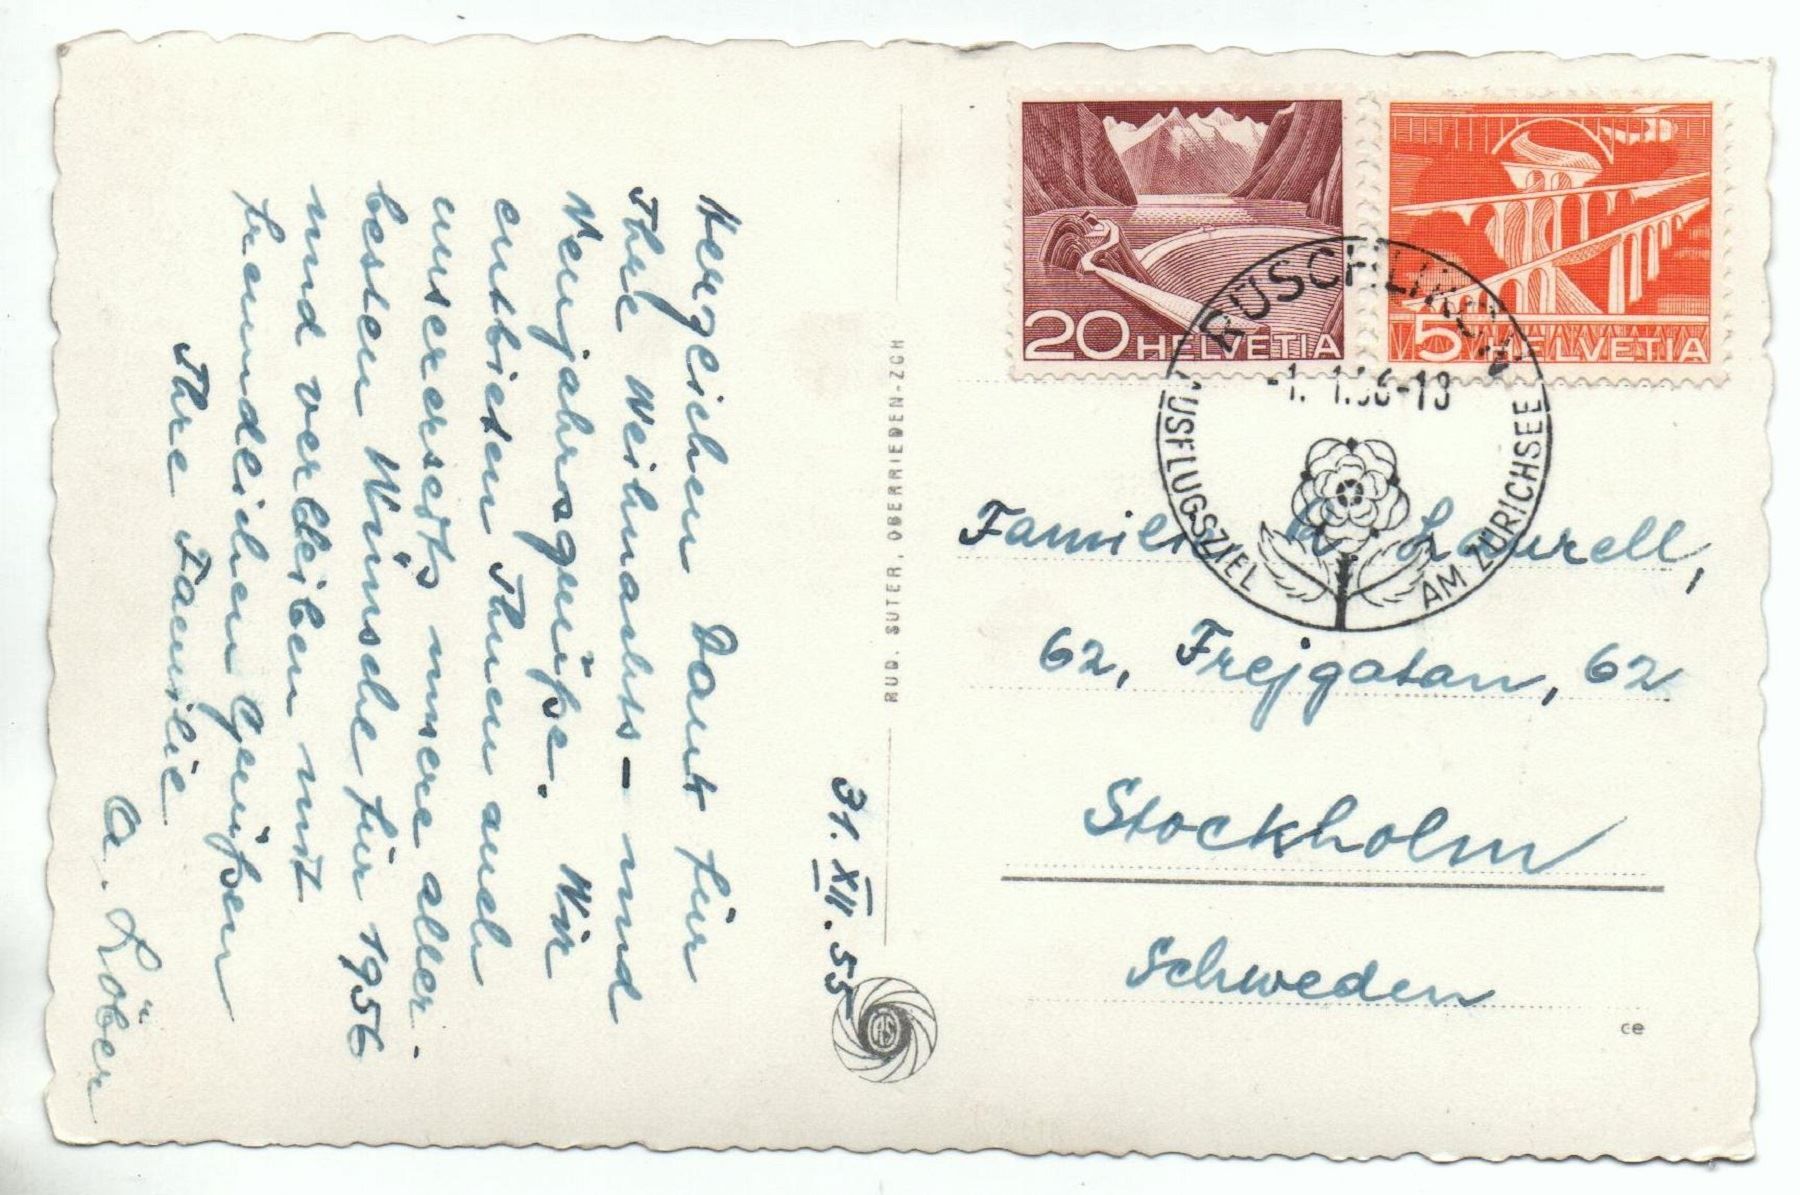 Herzlichen Dank für
Ihre Weihnachts- und
Neujahrsgrüße. Wir
entbieten Ihnen auch
unsererseits unsere aller-
besten Wünsche für 1956
und verbleiben mit
freundlichen Grüßen
Ihre Familie
A. Löber
31. XII. 55
RUD. SUTER, OBERRIEDEN-ZCH
20 HELVETIA
5 HELVETIA
RÜSCHLIKON
-1. 1.56-18
AUSFLUGSZIEL AM ZÜRICHSEE
Familie Laurell,
62, Frejgatan, 62
Stockholm
Schweden
ce
RS